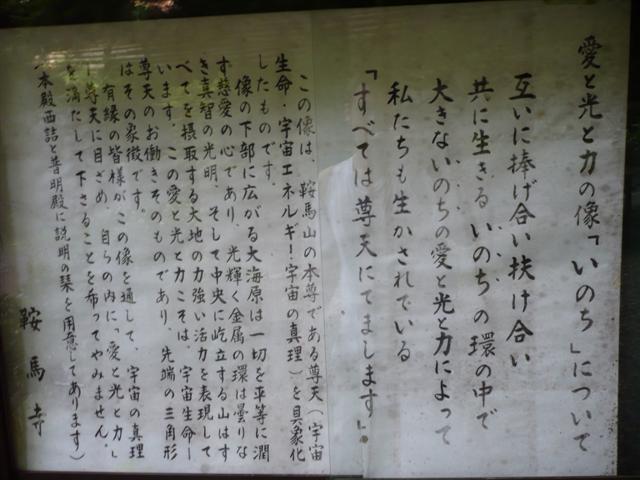 愛と光と力の像「いのち」について
互いに捧げ合い扶け合い
共に生きるいのちの環の中で
大きないのちの愛と光と力によって
私たちも生かされている
「すべては尊天にてまします」。
この像は、鞍馬山の本尊である尊天(宇宙
生命・宇宙エネルギー・宇宙の真理)を具象化
したものです。
像の下部に広がる大海原は一切を平等に潤
す慈愛の心であり、光輝く金属の環は曇りな
き真智の光明、そして中央に屹立する山はす
べてを摂取する大地の力強い活力を表現して
います。この愛と光と力こそは、宇宙生命ー
尊天のお働きそのものであり、先端の三角形
はその象徴です。
有縁の皆様がこの像を通して、宇宙の真理
ー尊天に目ざめ、自らの内に「愛と光と力」
を満たして下さることを布ってやみません。
(本殿西詰と普明殿に説明の栞を用意してあります)
鞍馬寺